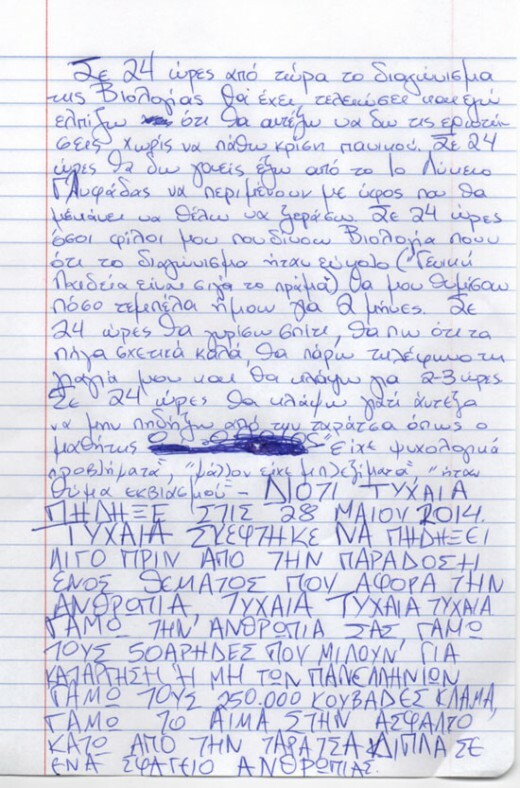 Σε 24 ώρες από τώρα το διαγώνισμα
της Βιολογίας θα έχει τελειώσει και εγώ
ελπίζω ότι θα αντέξω να δω τις ερωτή
σεις χωρίς να πάθω κρίση πανικού. Σε 24
ώρες θα δω γονείς έξω από το 1ο Λύκειο
Γλυφάδας να περιμένουν με ύφος που θα
με κάνει να θέλω να ξεράσω. Σε 24 ώρες
όσοι φίλοι μου που δίνουν Βιολογία πουν
ότι το διαγώνισμα ήταν εύκολο (Γενική
Παιδεία είναι σιγά το πράμα) θα μου θυμίσουν
πόσο τεμπέλα ήμουν για 2 μήνες. Σε
24 ώρες θα γυρίσω σπίτι, θα πω ότι τα
πήγα σχετικά καλά, θα πάρω τηλέφωνο τη
γιαγιά μου και θα κλάψω για 2-3 ώρες
Σε 24 ώρες θα κλάψω γιατί άντεξα
να μην πηδήξω από την ταράτσα όπως ο
μαθητής "είχε ψυχολογικά
προβλήματα", "μάλλον είχε μπλεξίματα", "ήταν
θύμα εκβιασμού" - ΔΙΟΤΙ ΤΥΧΑΙΑ
ΠΗΔΗΞΕ ΣΤΙΣ 28 ΜΑΙΟΥ 2014.
ΤΥΧΑΙΑ ΣΚΕΦΤΗΚΕ ΝΑ ΠΗΔΗΞΕΙ
ΛΙΓΟ ΠΡΙΝ ΑΠΟ ΤΗΝ ΠΑΡΑΔΟΣΗ
ΕΝΟΣ ΘΕΜΑΤΟΣ ΠΟΥ ΑΦΟΡΑ ΤΗΝ
ΑΝΘΡΩΠΙΑ. ΤΥΧΑΙΑ ΤΥΧΑΙΑ ΤΥΧΑΙΑ
ΓΑΜΩ ΤΗΝ ΑΝΘΡΩΠΙΑ ΣΑΣ ΓΑΜΩ
ΤΟΥΣ 50ΑΡΗΔΕΣ ΠΟΥ ΜΙΛΟΥΝ ΓΙΑ
ΚΑΤΑΡΓΗΣΗ Ή ΜΗ ΤΩΝ ΠΑΝΕΛΛΗΝΙΩΝ
ΓΑΜΩ ΤΟΥΣ 250.000 ΚΟΥΒΑΔΕΣ ΚΛΑΜΑ,
ΓΑΜΩ ΤΟ ΑΙΜΑ ΣΤΗΝ ΑΣΦΑΛΤΟ
ΚΑΤΩ ΑΠΟ ΤΗΝ ΤΑΡΑΤΣΑ ΔΙΠΛΑ ΣΕ
ΕΝΑ ΣΦΑΓΕΙΟ ΑΝΘΡΩΠΙΑΣ.